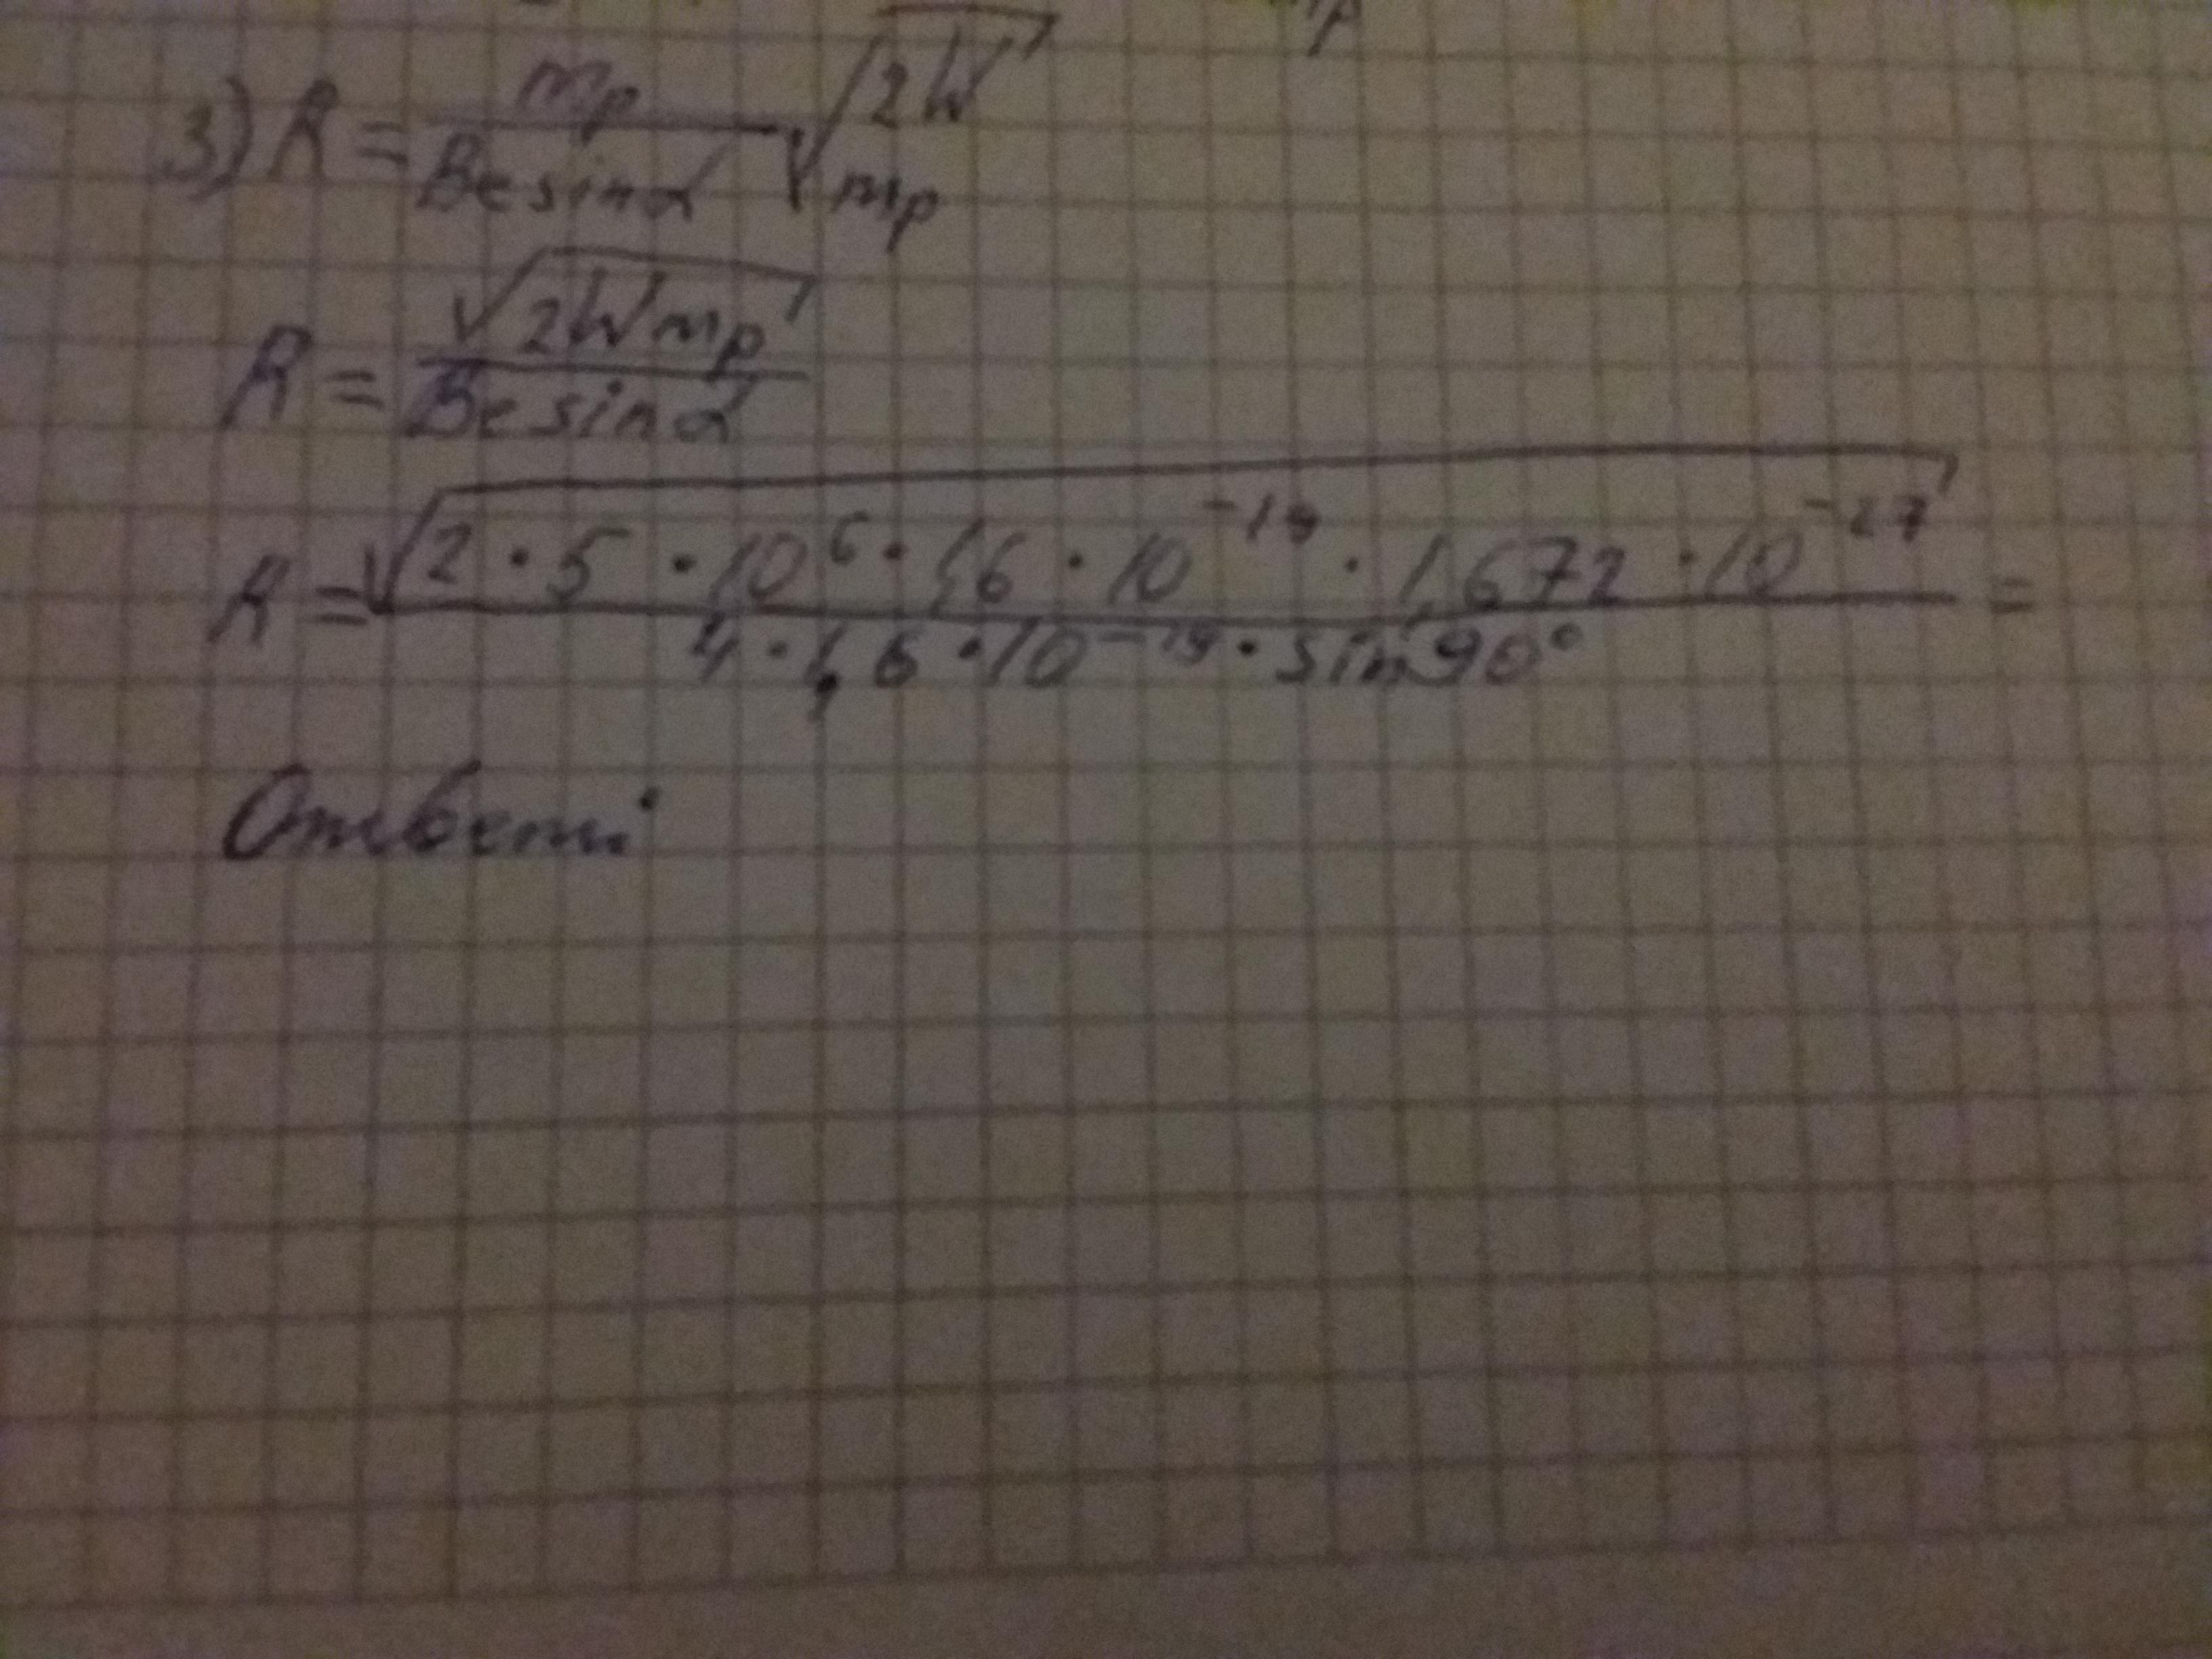 3) R = mp / (Be sinα) √(2W / mp)
R = √(2Wmp) / (Be sinα)
R = √(2 · 5 · 10⁶ · 1,6 · 10⁻¹⁹ · 1,672 · 10⁻²⁷) / (4 · 1,6 · 10⁻¹⁹ · sin90°) =
Ответ: